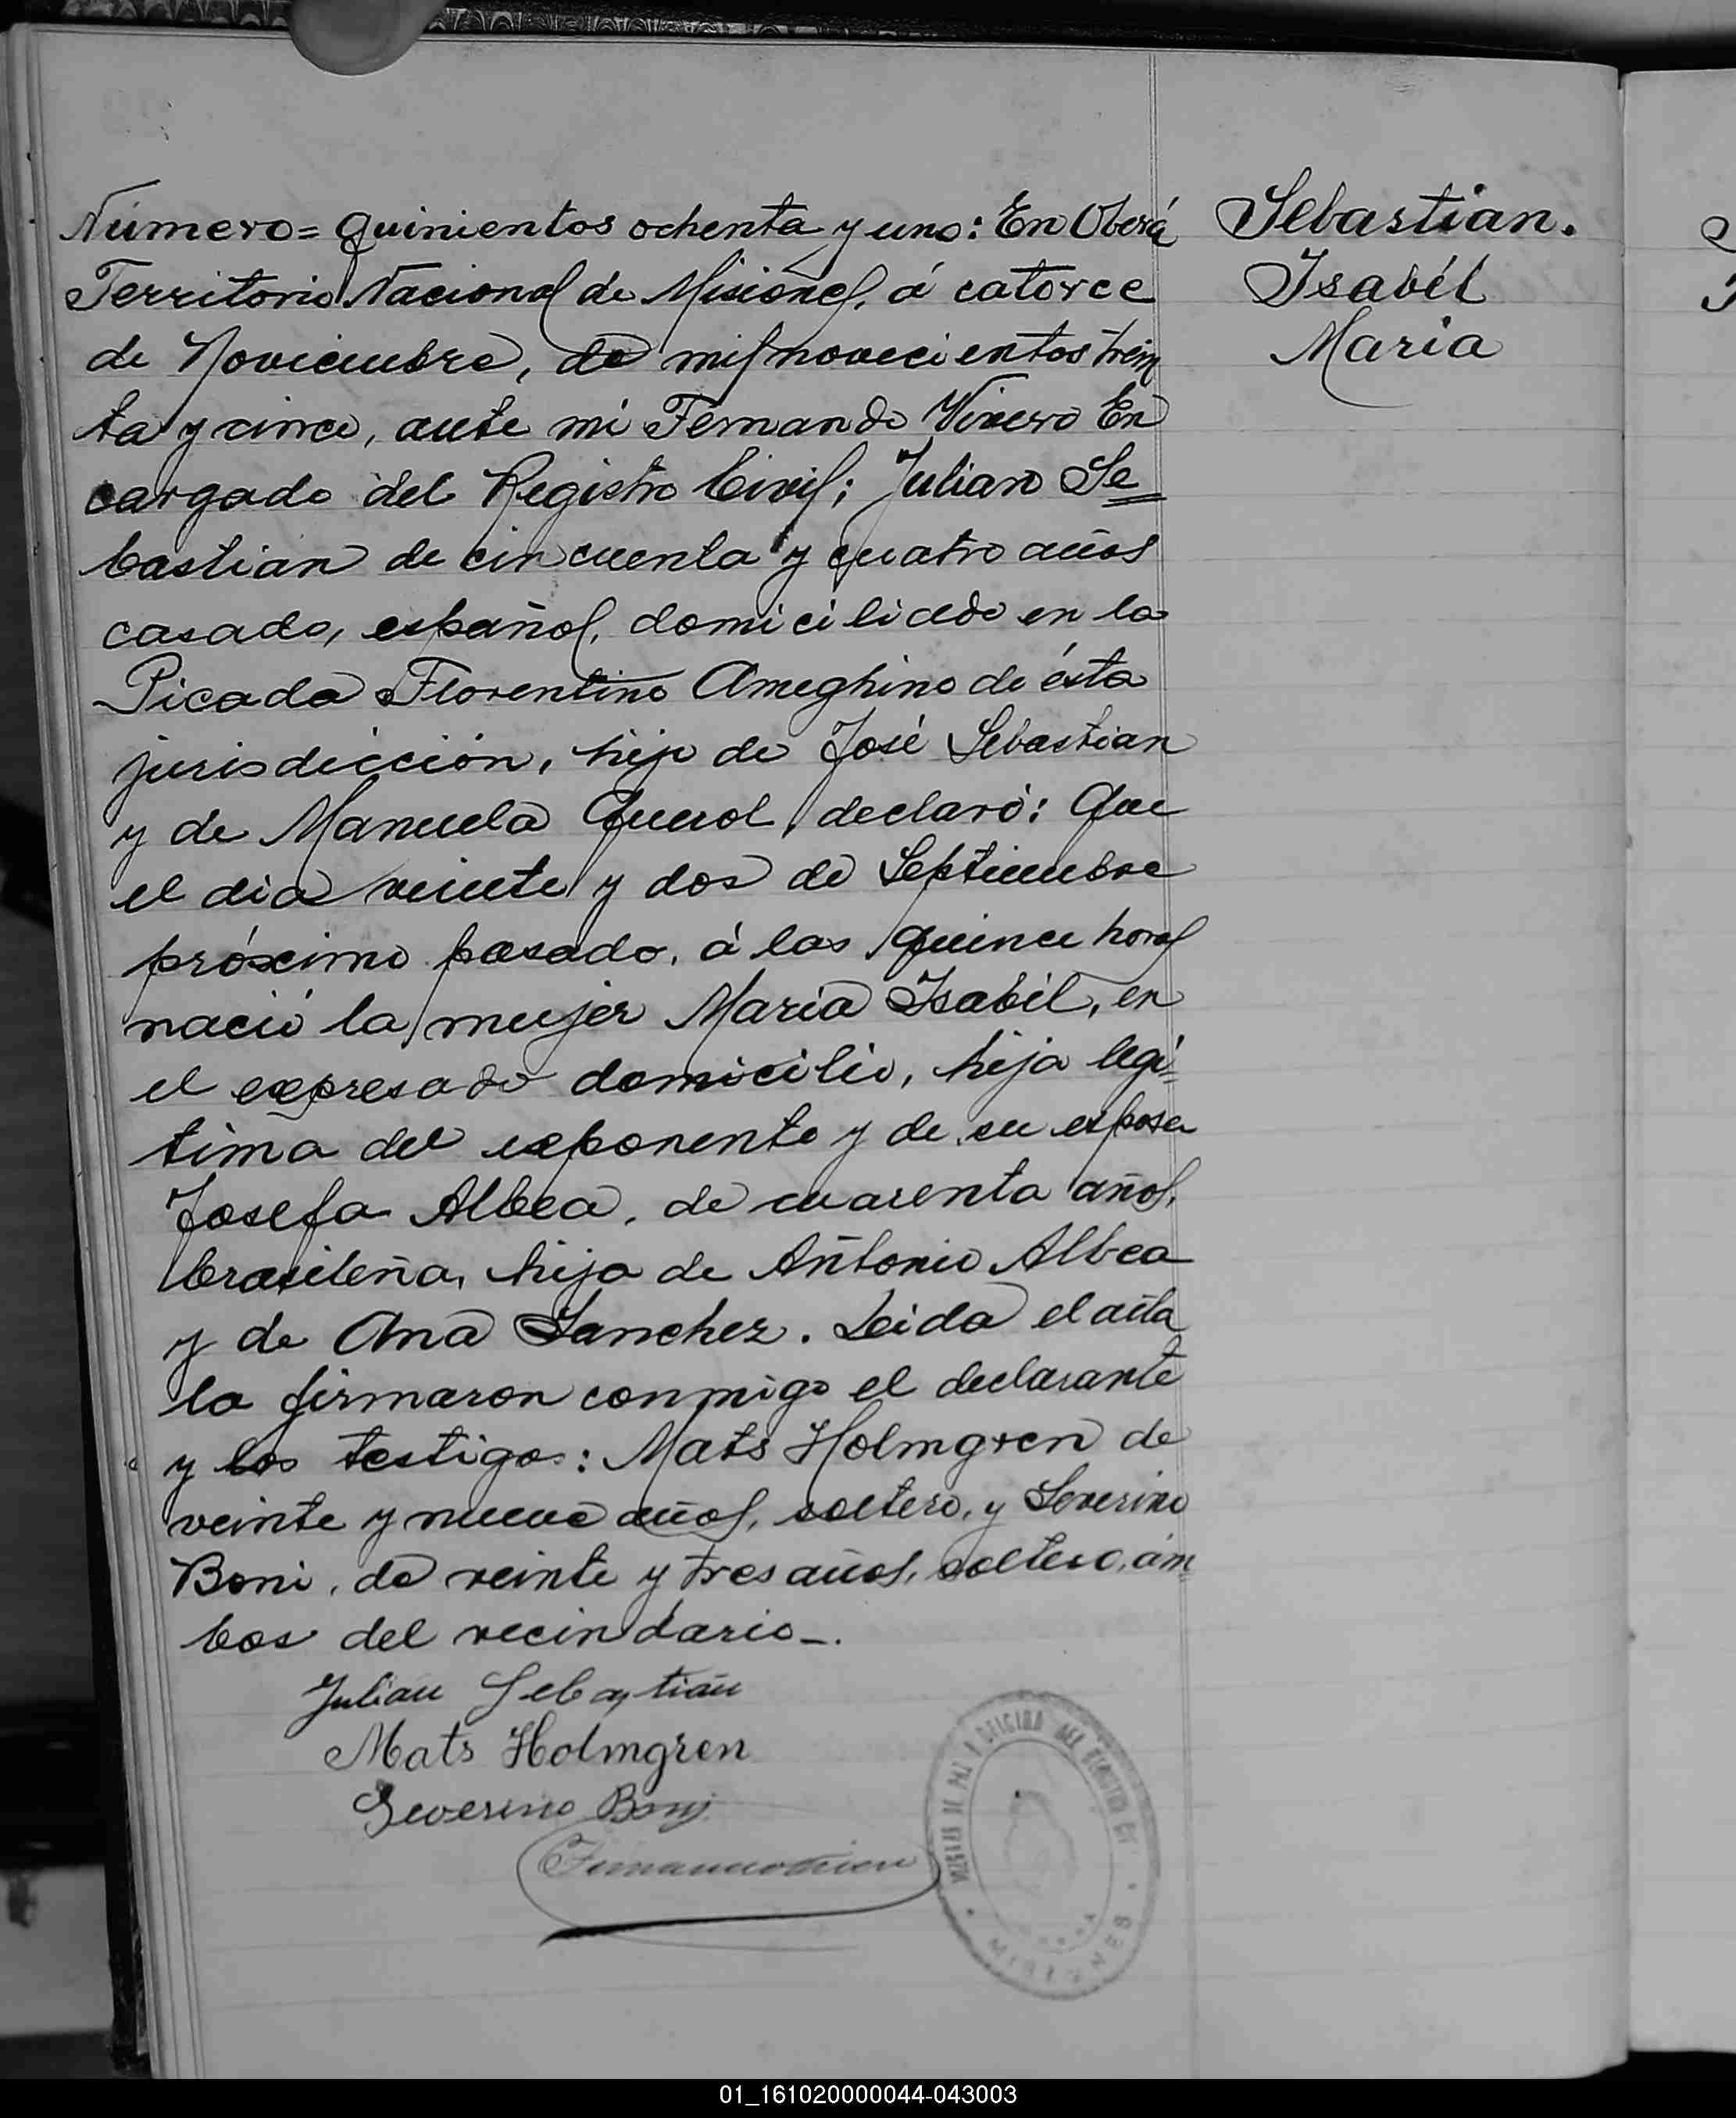 Número = quinientos ochenta y uno: En Oberá
Territorio Nacional de Misiones, á catorce
de Noviembre, de mil novecientos trein
ta y cinco, ante mi Fernando Vivero En
cargado del Registro Civil; Julian Se=
bastian de cincuenta y cuatro años
casado, español, domiciliado en la
Picada Florentino Ameghino de ésta
jurisdicción, hijo de José Sebastian
y de Manuela Querol, declaró: Que
el dia veinte y dos de Septiembre
próximo pasado, á las quince horas
nació la mujer Maria Isabél, en
el expresado domicilio, hija legi=
tima del exponente y de su esposa
Josefa Albea, de cuarenta años,
brasileña, hija de Antonio Albea
y de Ana Sanchez. Leida el acta
la firmaron conmigo el declarante
y los testigos: Mats Holmgren de
veinte y nueve años, soltero, y Severino
Boni, de veinte y tres años, soltero, am
bos del vecindario_.
Julian Sebastián
Mats Holmgren
Severino Boni
Sebastian.
Isabél
Maria
JUZGADO DE PAZ Y OFICINA DEL REGISTRO CIVIL
MISIONES
01_161020000044-043003